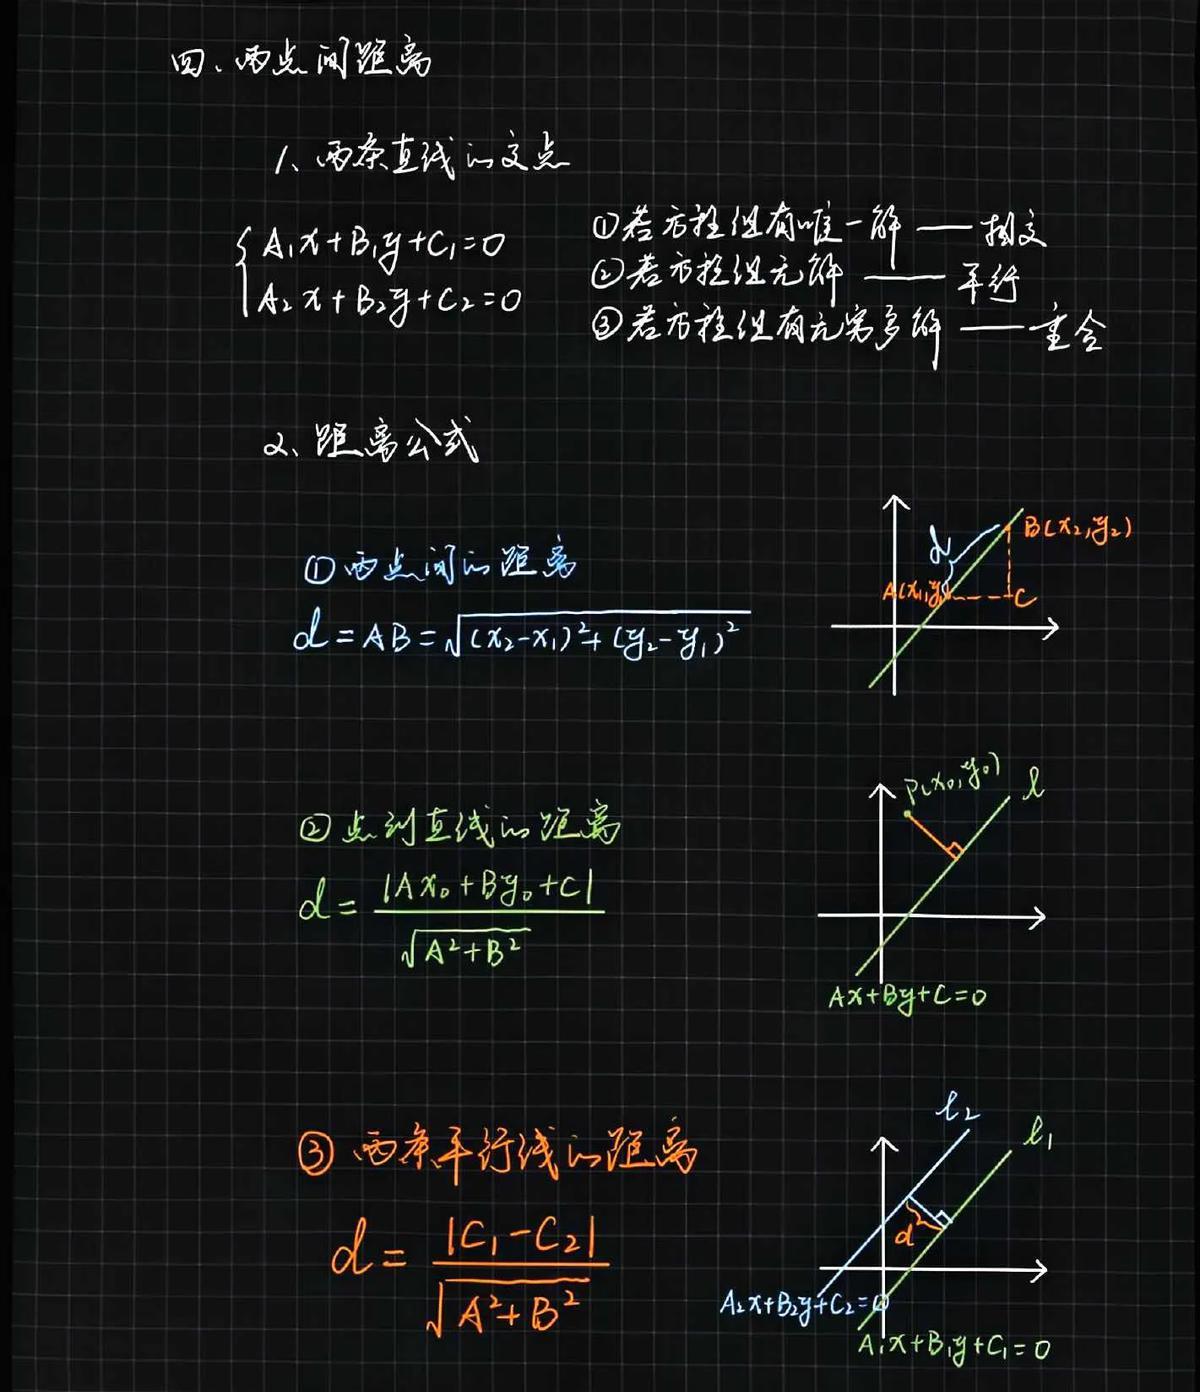 四、两点间距离
1、两条直线的交点
A₁x+B₁y+C₁=0
A₂x+B₂y+C₂=0
①若方程组有唯一解——相交
②若方程组无解——平行
③若方程组有无穷多解——重合
2、距离公式
①两点间的距离
d=AB=√(x₂-x₁)²+(y₂-y₁)²
d
B(x₂,y₂)
A(x₁,y₁
C
②点到直线的距离
d=|Ax₀+By₀+C|
√A²+B²
P(x₀,y₀)
l
Ax+By+C=0
③两条平行线的距离
d=|C₁-C₂|
√A²+B²
l₂
l₁
d
A₂x+B₂y+C₂=0
A₁x+B₁y+C₁=0